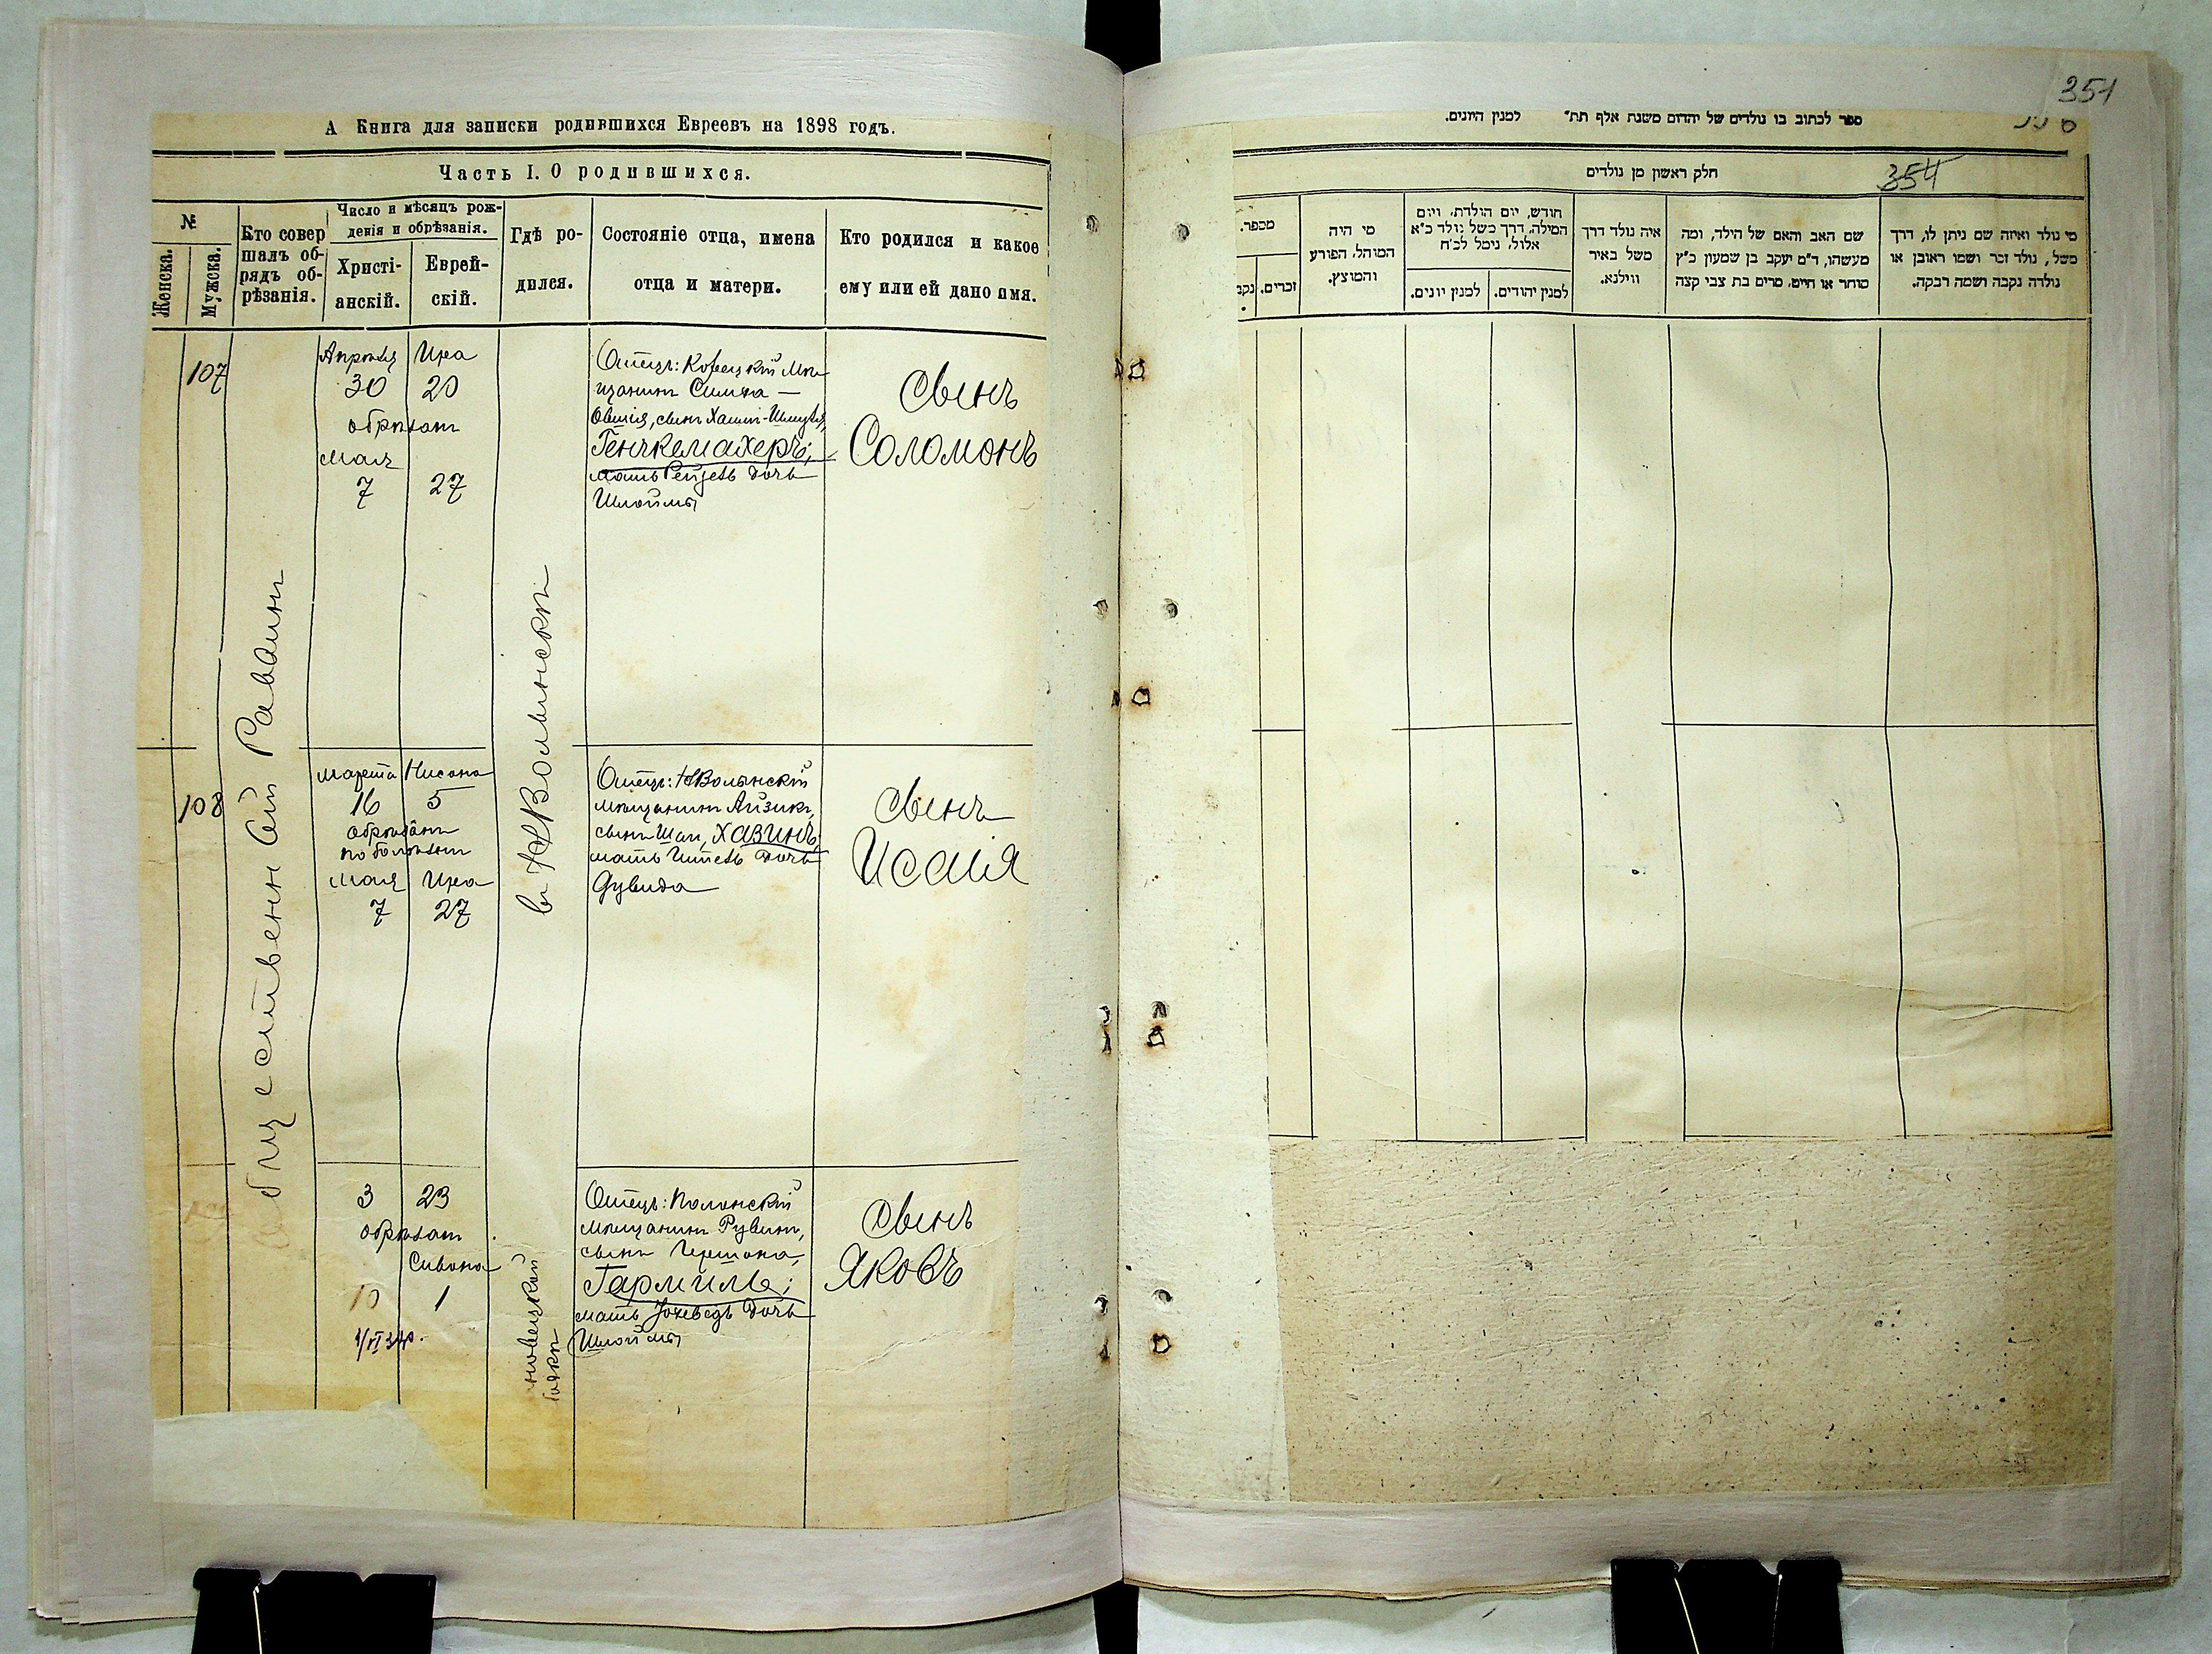 А Книга для записки родившихся Евреевъ на 1898 годъ.
Часть I. О родившихся.
№
Женска.
Мужска.
Кто совер
шалъ об-
рядъ об-
рѣзанія.
Число и мѣсяцъ рож-
денія и обрѣзанія.
Христі-
анскій.
Еврей-
скій.
Гдѣ ро-
дился.
Состояніе отца, имена
отца и матери.
Кто родился и какое
ему или ей дано имя.
Общественный Раввинъ
в НВолынскѣ
107
Апрѣля Ира
30 20
обрѣзан
мая
7 27
Отецъ: Корецкій мѣ
щанин Симха —
Овшія, сын Хаим-Шмуля,
Генчкемахеръ;
мать Рейзеѣ дочь
Шлоймы
Сынъ
Соломонъ
108
марта Нисона
16 5
обрѣзан
по болѣзни
мая Ира
7 27
Отецъ: НВолынскій
мѣщанин Айзик,
сын Шаи, Хазинъ,
мать дочь
Дувида
Сынъ
Исаія
3 23
обрѣзан
Сивона
10 1
Отецъ: Полонскій
мѣщанин Рувин,
сын Гершона,
Гармиль;
мать Јохеведъ дочь
Шлоймы
Сынъ
Яковъ
351
ספר לכתוב בו נולדים של יהדום משנת אלף תת״ למנין היונים.
חלק ראשון מן נולדים
354
מי נולד ואיזה שם ניתן לו, דרך
משל, נולד זכר ושמו ראובן או
נולדה נקבה ושמה רבקה.
שם האב והאם של הילד, ומה
מעשהו, ד״מ יעקב בן שמעון כ״ץ
סוחר או חייט, מרים בת צבי קצה
איה נולד דרך
משל באיר
ווילנא.
חודש, יום הולדת, ויום
המילה, דרך משל נולד כ״א
אלול, נימל לכ״ח
למנין יהודים.
למנין יונים.
מי היה
המוהל, הפורע
והמוצץ.
מספר.
זכרים.
נקב